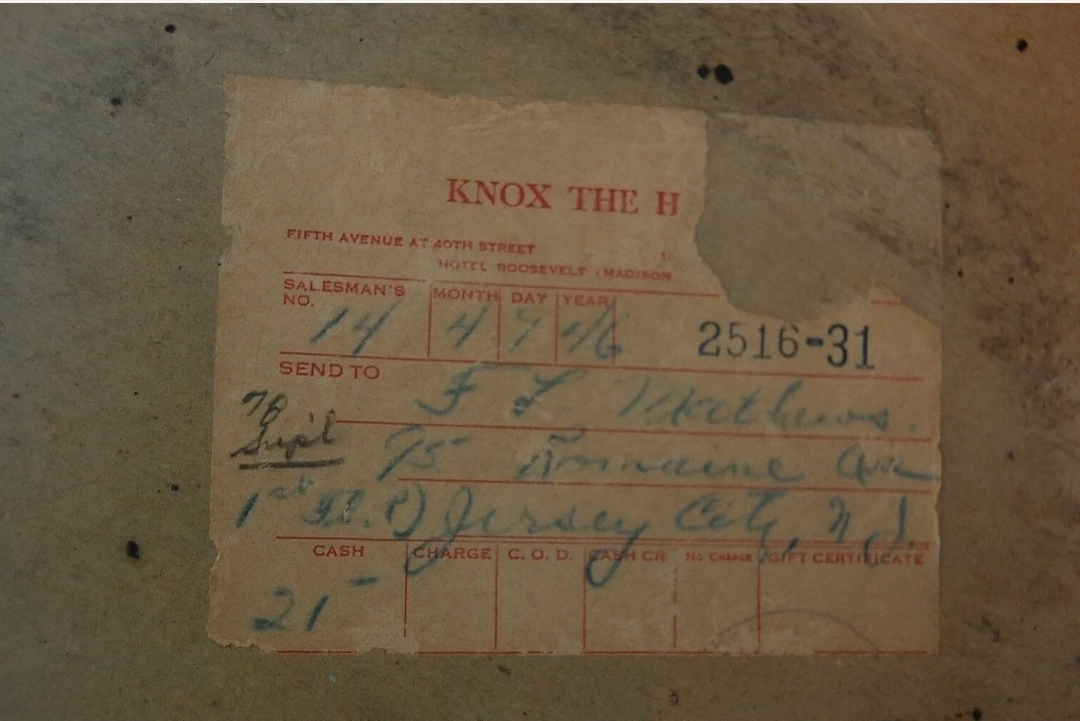 KNOX THE H
FIFTH AVENUE AT 40TH STREET
HOTEL ROOSEVELT (MADISON
SALESMAN'S NO. MONTH DAY YEAR
14 4 7 46 2516-31
SEND TO F. L. Mathews.
To Sup't 75 Romaine Ave
1st Fl. Jersey City, N.J.
CASH CHARGE C. O. D. CASH CR NO CHARGE GIFT CERTIFICATE
21 -